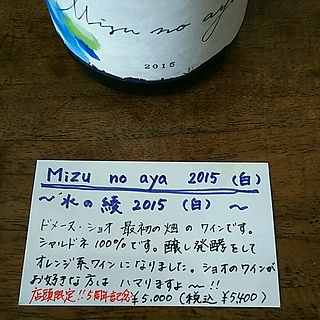 Mizu no aya
2015
Mizu no aya 2015 (白)
～水の綾 2015 (白) ～
ドメーヌ・ショオ 最初の畑のワインです。
シャルドネ 100%です。醸し発酵をして
オレンジ系ワインになりました。ショオのワインが
お好きな方は ハマりますよ～!!
店頭限定!!5周年記念 ¥5,000 (税込 ¥5,400)